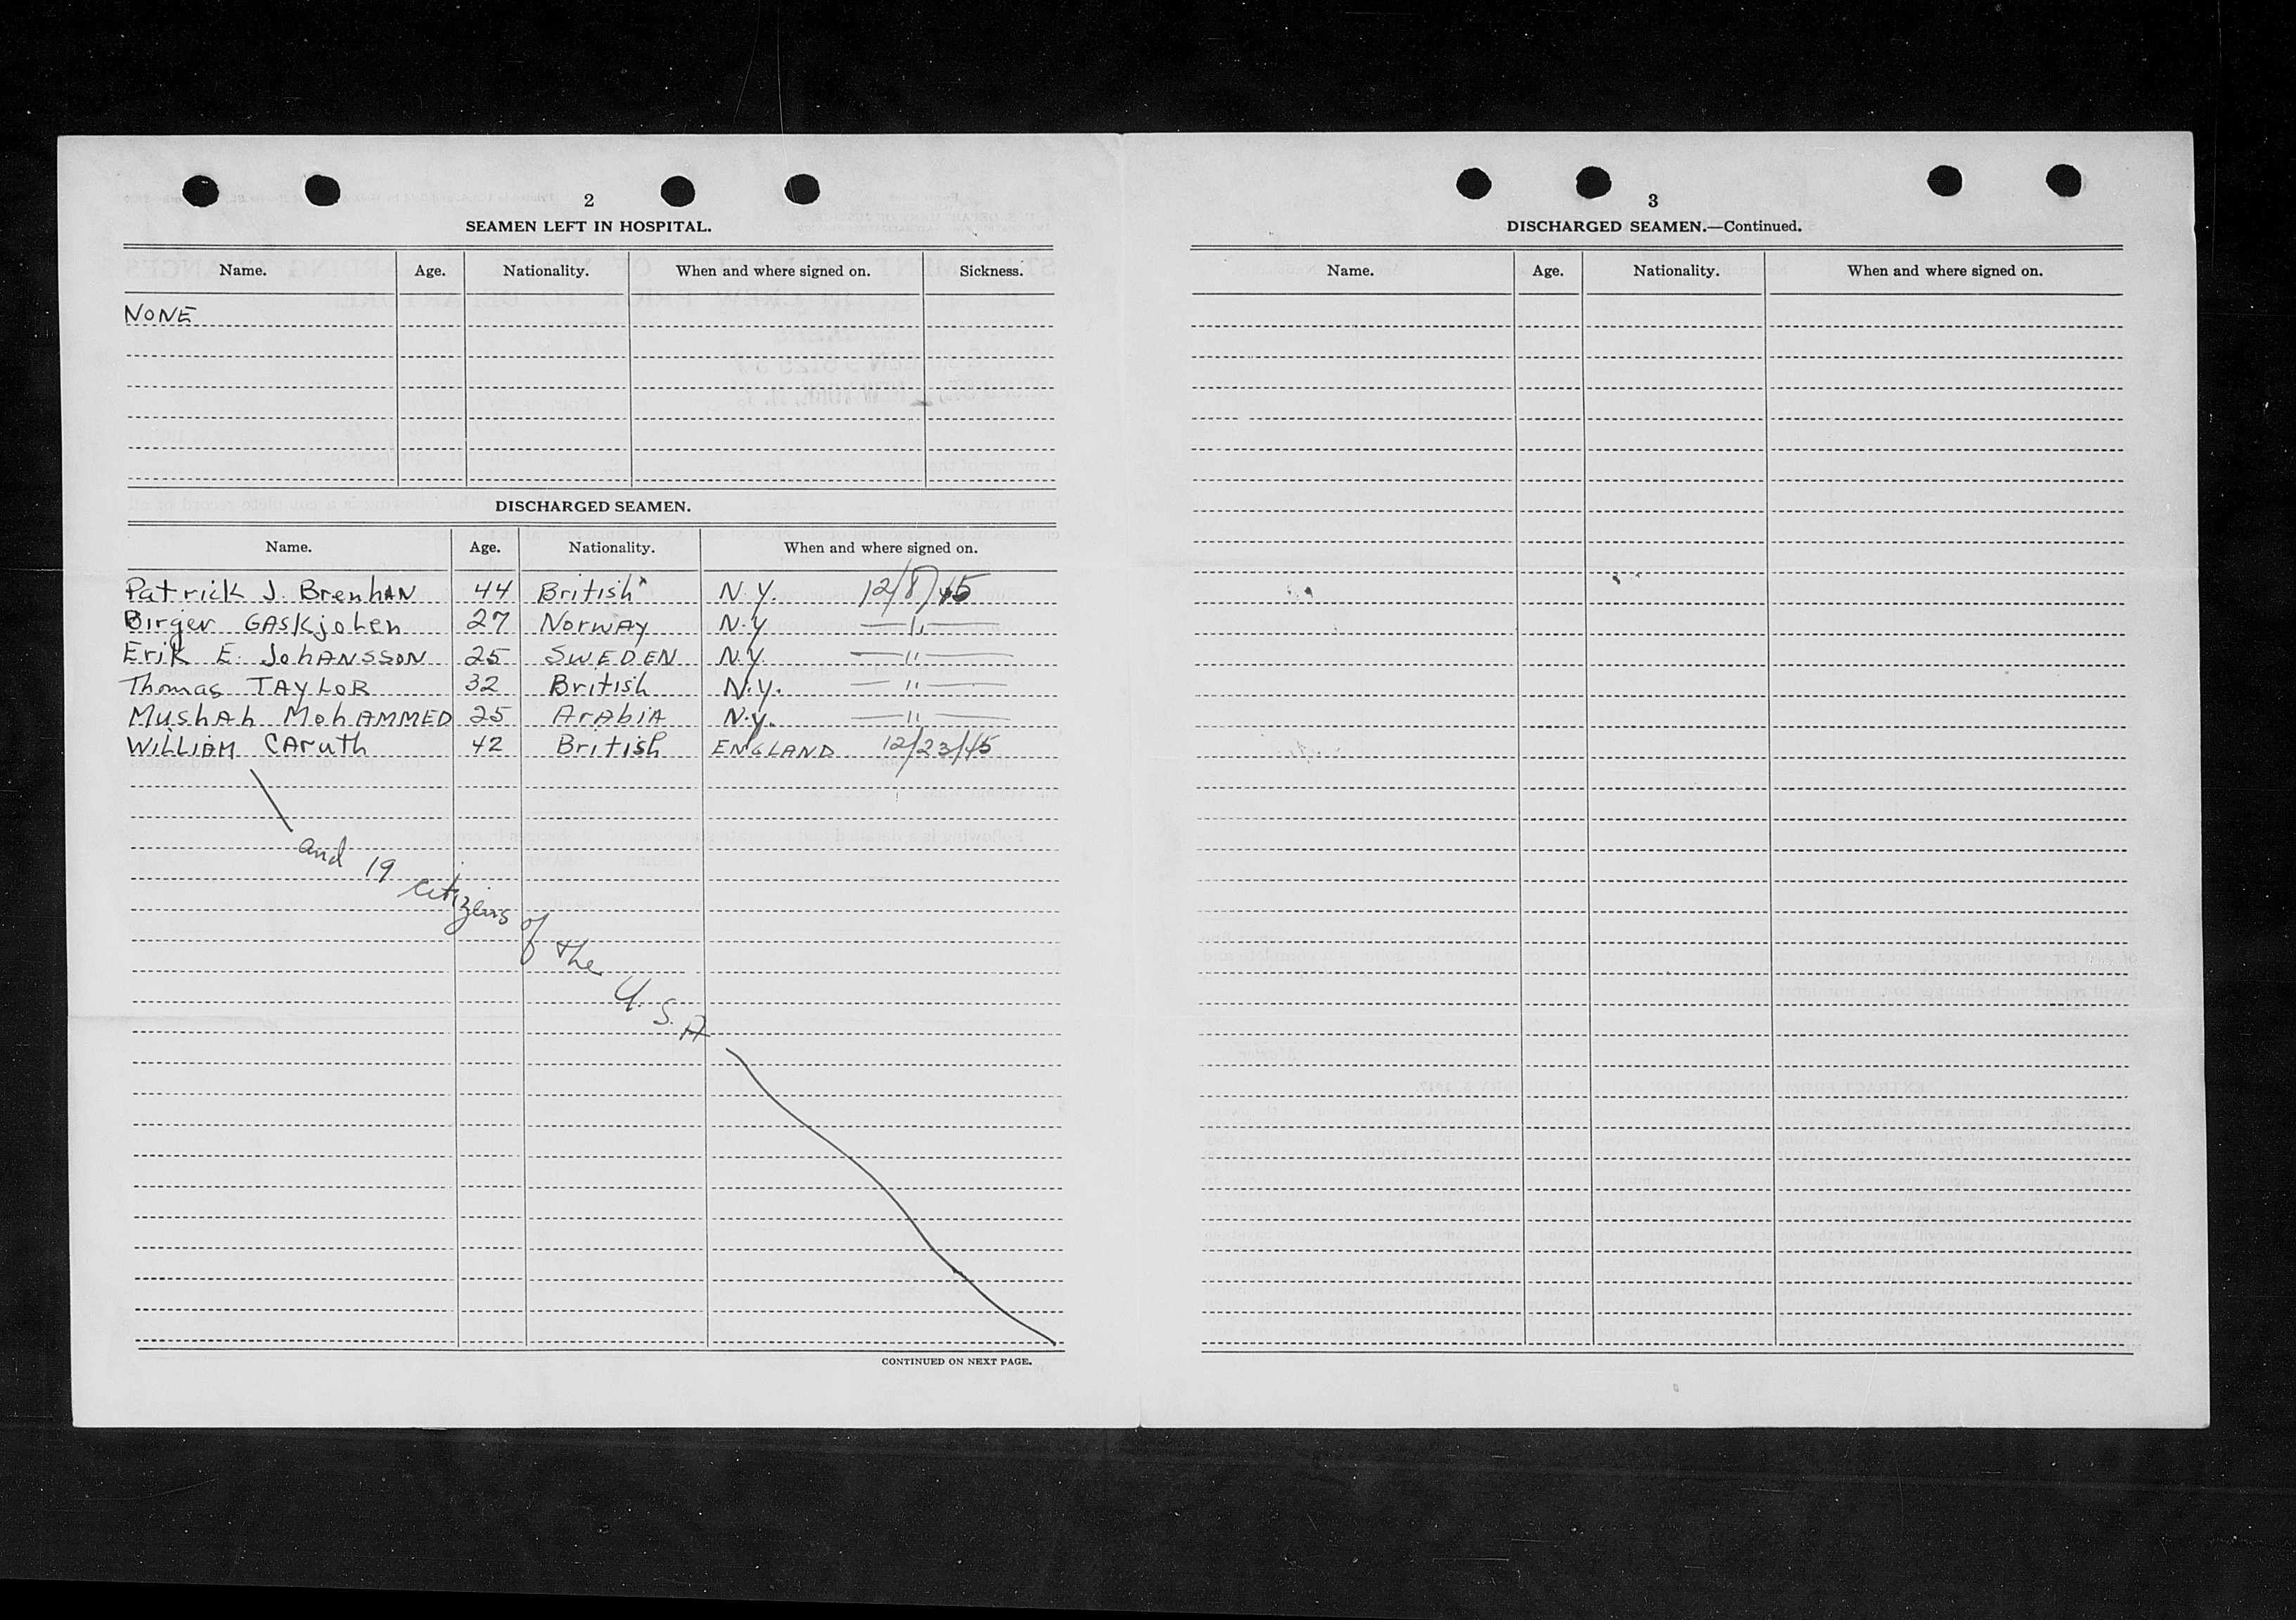 2
SEAMEN LEFT IN HOSPITAL.
Name. Age. Nationality. When and where signed on. Sickness.
NONE
DISCHARGED SEAMEN.
Name. Age. Nationality. When and where signed on.
Patrick J. BrenhAN 44 British N.Y. 12/8/45
Birger GASkjolen 27 NorWAy N.Y —"—
Erik E. JohANSSON 25 SWEDEN N.Y. —"—
Thomas TAYLOR 32 British N.Y. —"—
MushAh MohAMMED 25 ArAbiA N.Y. —"—
WiLLiAM CAruth 42 British ENGLAND 12/23/45
and 19 citizens of the U.S.A
CONTINUED ON NEXT PAGE.
3
DISCHARGED SEAMEN.—Continued.
Name. Age. Nationality. When and where signed on.